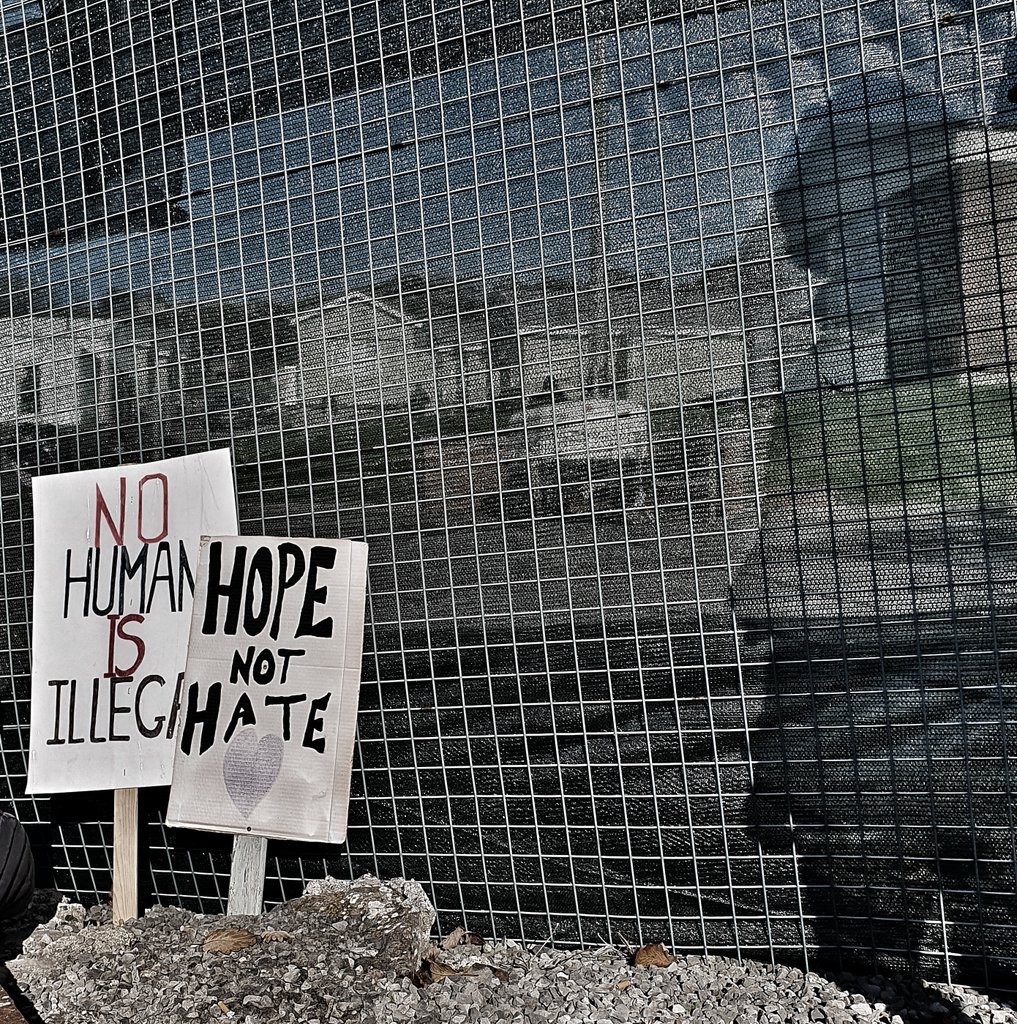 NO
HUMAN
IS
ILLEGA
HOPE
NOT
HATE